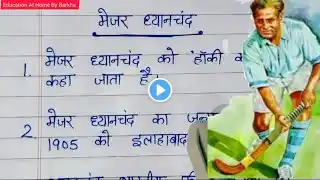 Education At Home By Barkha
मेजर ध्यानचंद
1. मेजर ध्यानचंद को 'हॉकी
कहा जाता है।
2. मेजर ध्यानचंद का
1905 को इलाहाबाद